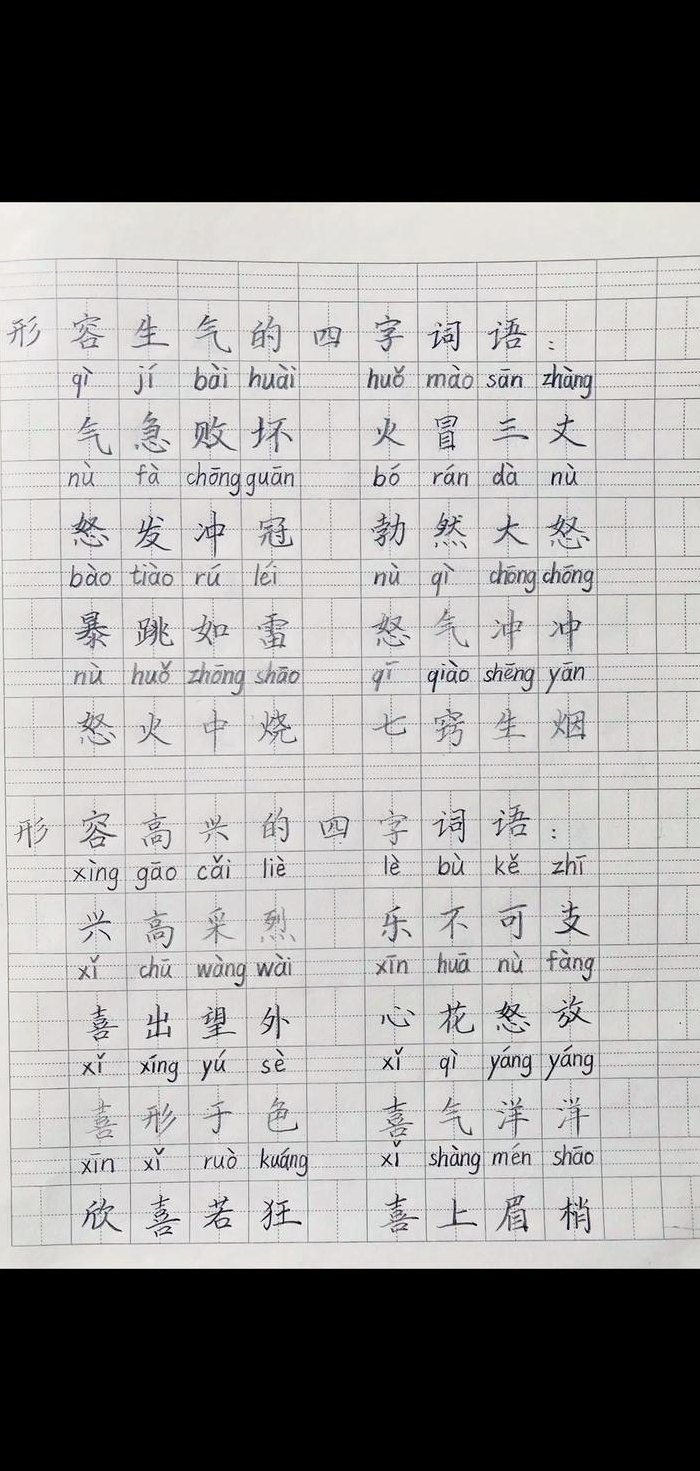 形容生气的四字词语：
qì jí bài huài huǒ mào sān zhàng
气急败坏 火冒三丈
nù fà chōng guān bó rán dà nù
怒发冲冠 勃然大怒
bào tiào rú léi nù qì chōng chōng
暴跳如雷 怒气冲冲
nù huǒ zhōng shāo qī qiào shēng yān
怒火中烧 七窍生烟
形容高兴的四字词语：
xìng gāo cǎi liè lè bù kě zhī
兴高采烈 乐不可支
xǐ chū wàng wài xīn huā nù fàng
喜出望外 心花怒放
xǐ xíng yú sè xǐ qì yáng yáng
喜形于色 喜气洋洋
xīn xǐ ruò kuáng xǐ shàng mén shāo
欣喜若狂 喜上眉梢